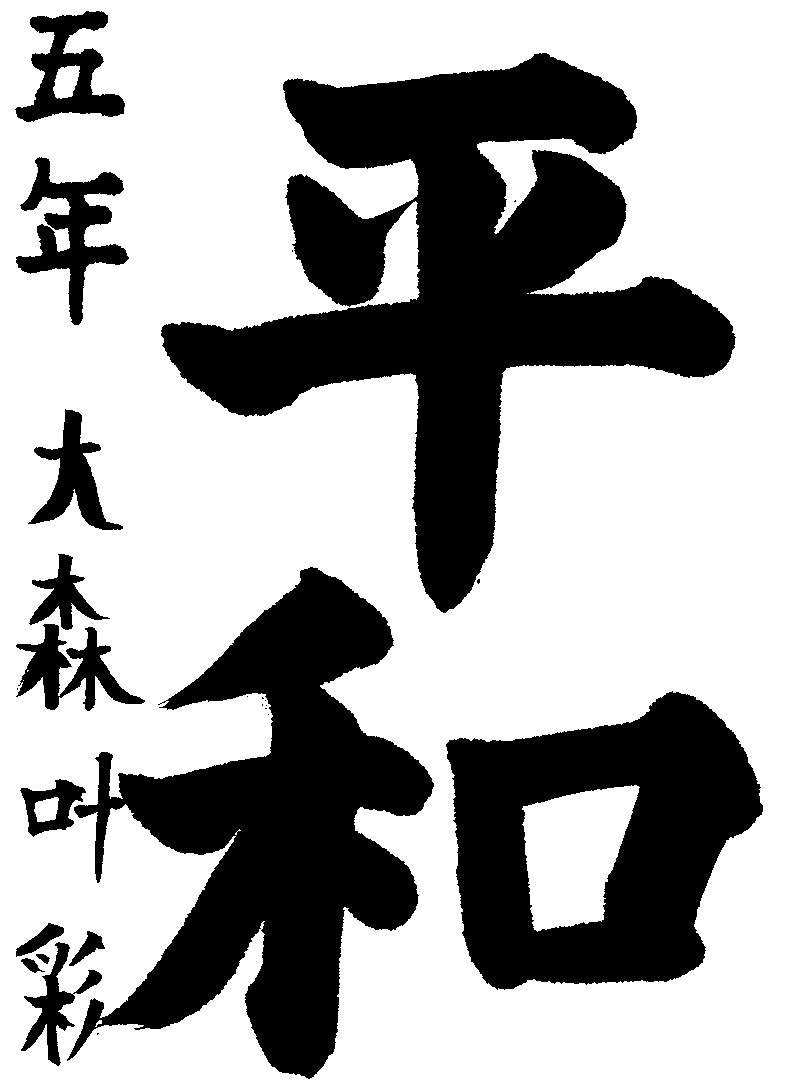 平和
五年 大森叶彩